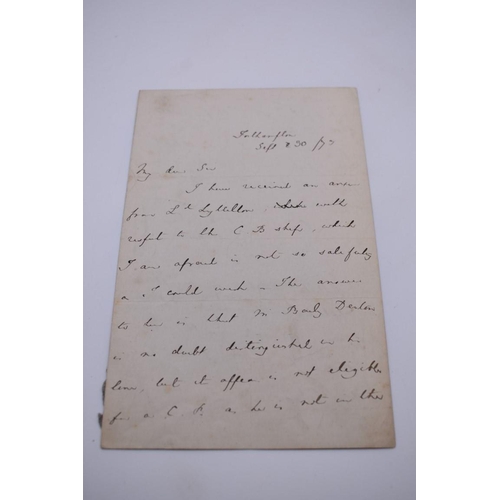 Sept 30 /73
My dear Sir
I have received an answer
from Ld Lyttelton, with
respect to the C B ship, which
I am afraid is not so satisfactory
as I could wish - The answer
to him is that Mr Baily Denton
is no doubt distinguished in his
line, but it appears is not eligible
for a C.B. as he is not in the